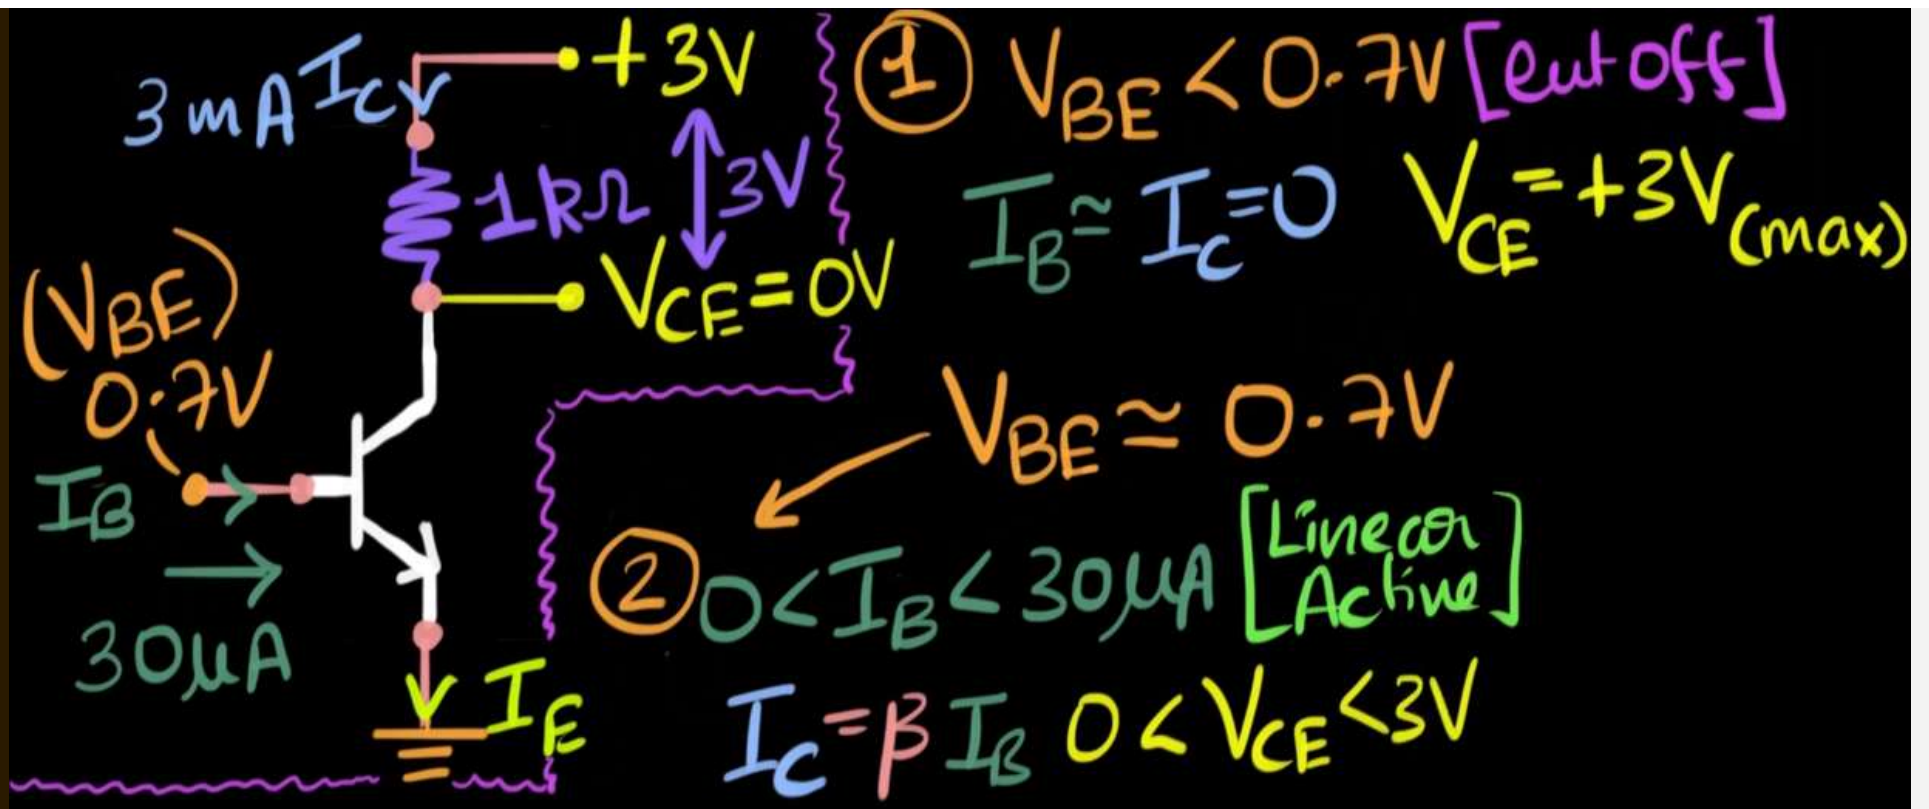 3mA I_C
+3V
1kΩ
3V
V_CE = 0V
(V_BE)
0.7V
I_B
30μA
I_E
① V_BE < 0.7V [cut off]
I_B ≃ I_C = 0 V_CE = +3V (max)
V_BE ≃ 0.7V
② 0 < I_B < 30μA [Linear
Active]
I_C = β I_B 0 < V_CE < 3V